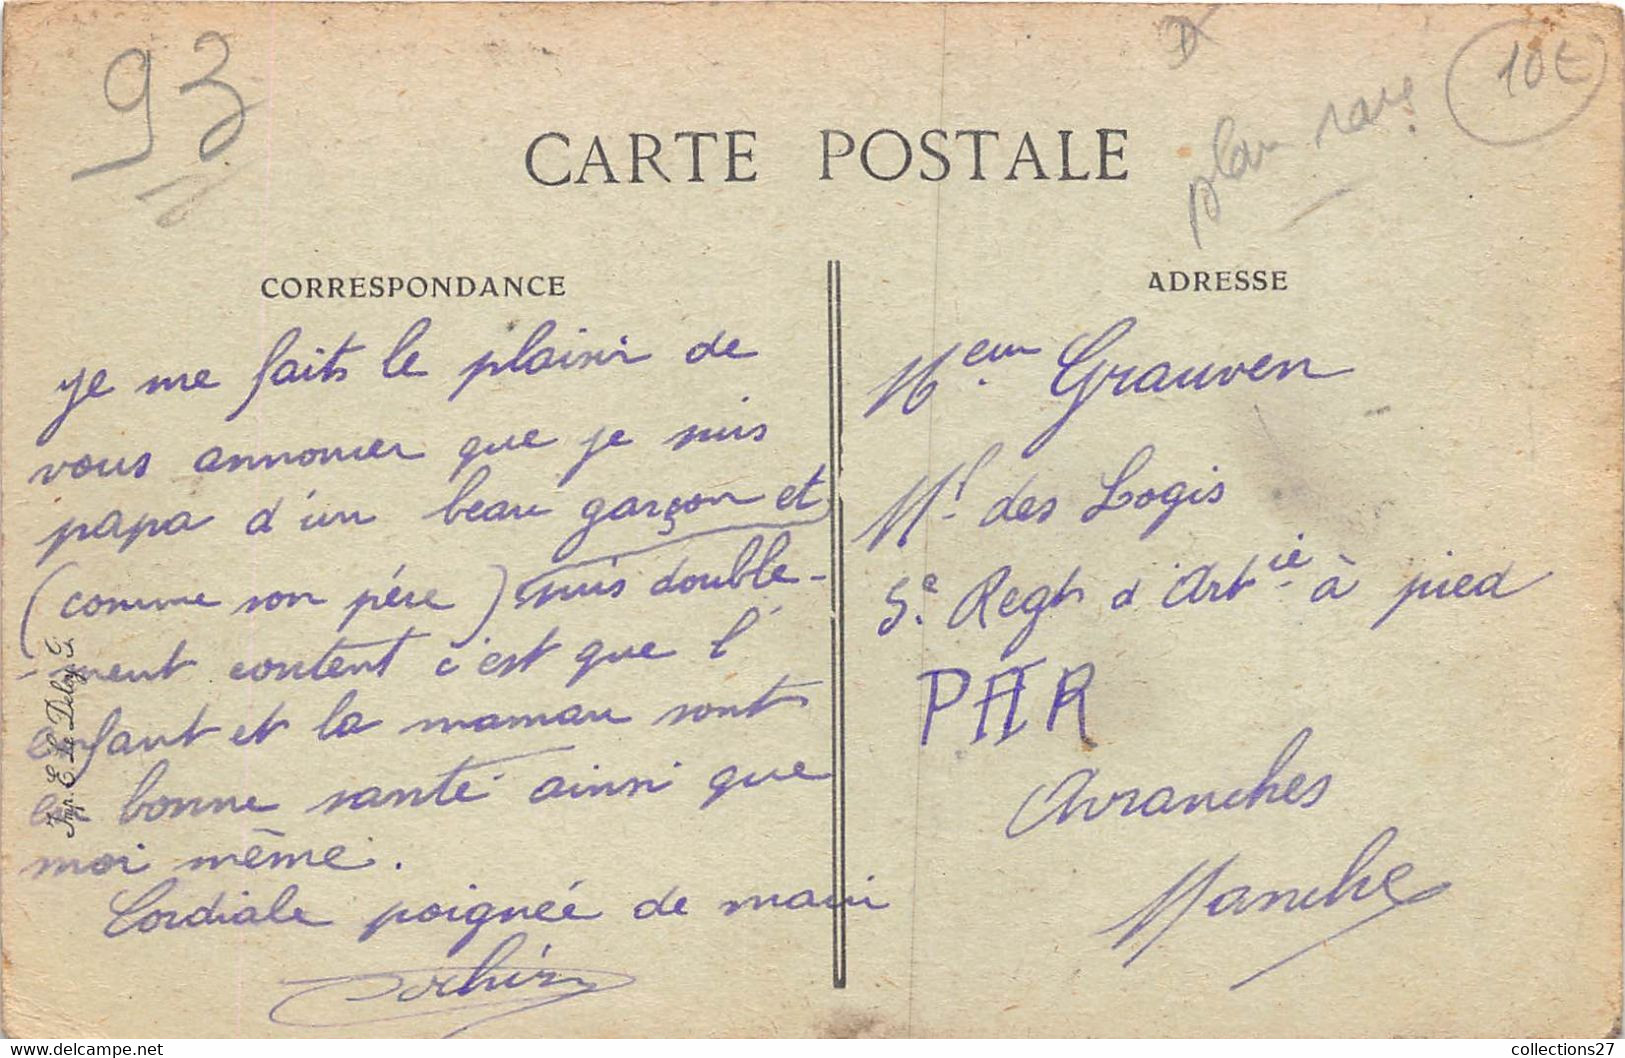 93
plan rare
10€
CARTE POSTALE
CORRESPONDANCE
Je me faits le plaisir de
vous annoncer que je suis
papa d'un beau garçon et
(comme son père) suis double-
-ment content c'est que l'
enfant et la maman sont
en bonne santé ainsi que
moi même.
Cordiale poignée de main
Imp. E. Le Deley
ADRESSE
Mr Grauwen
Ml des Logis
5e Regt d'Artie à pied
PAR
Avranches
Manche
collections27